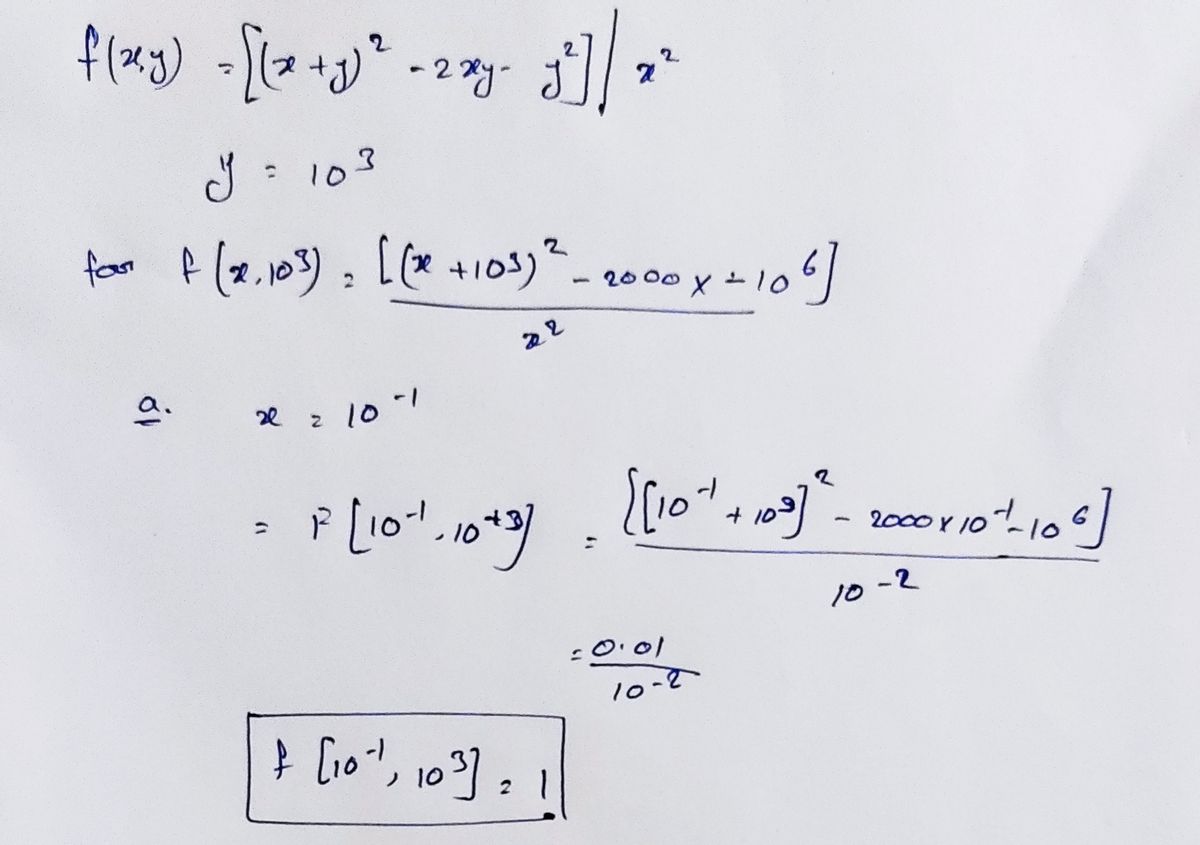 f(x,y) = [(x+y)² - 2xy - y²] / x²
y = 10³
for f(x,10³) = [(x+10³)² - 2000x - 10⁶]
x²
a. x = 10⁻¹
= F[10⁻¹, 10⁺³] = [[10⁻¹ + 10³]² - 2000x10⁻¹ - 10⁶]
10⁻²
= 0.01
10⁻²
f[10⁻¹, 10³] = 1